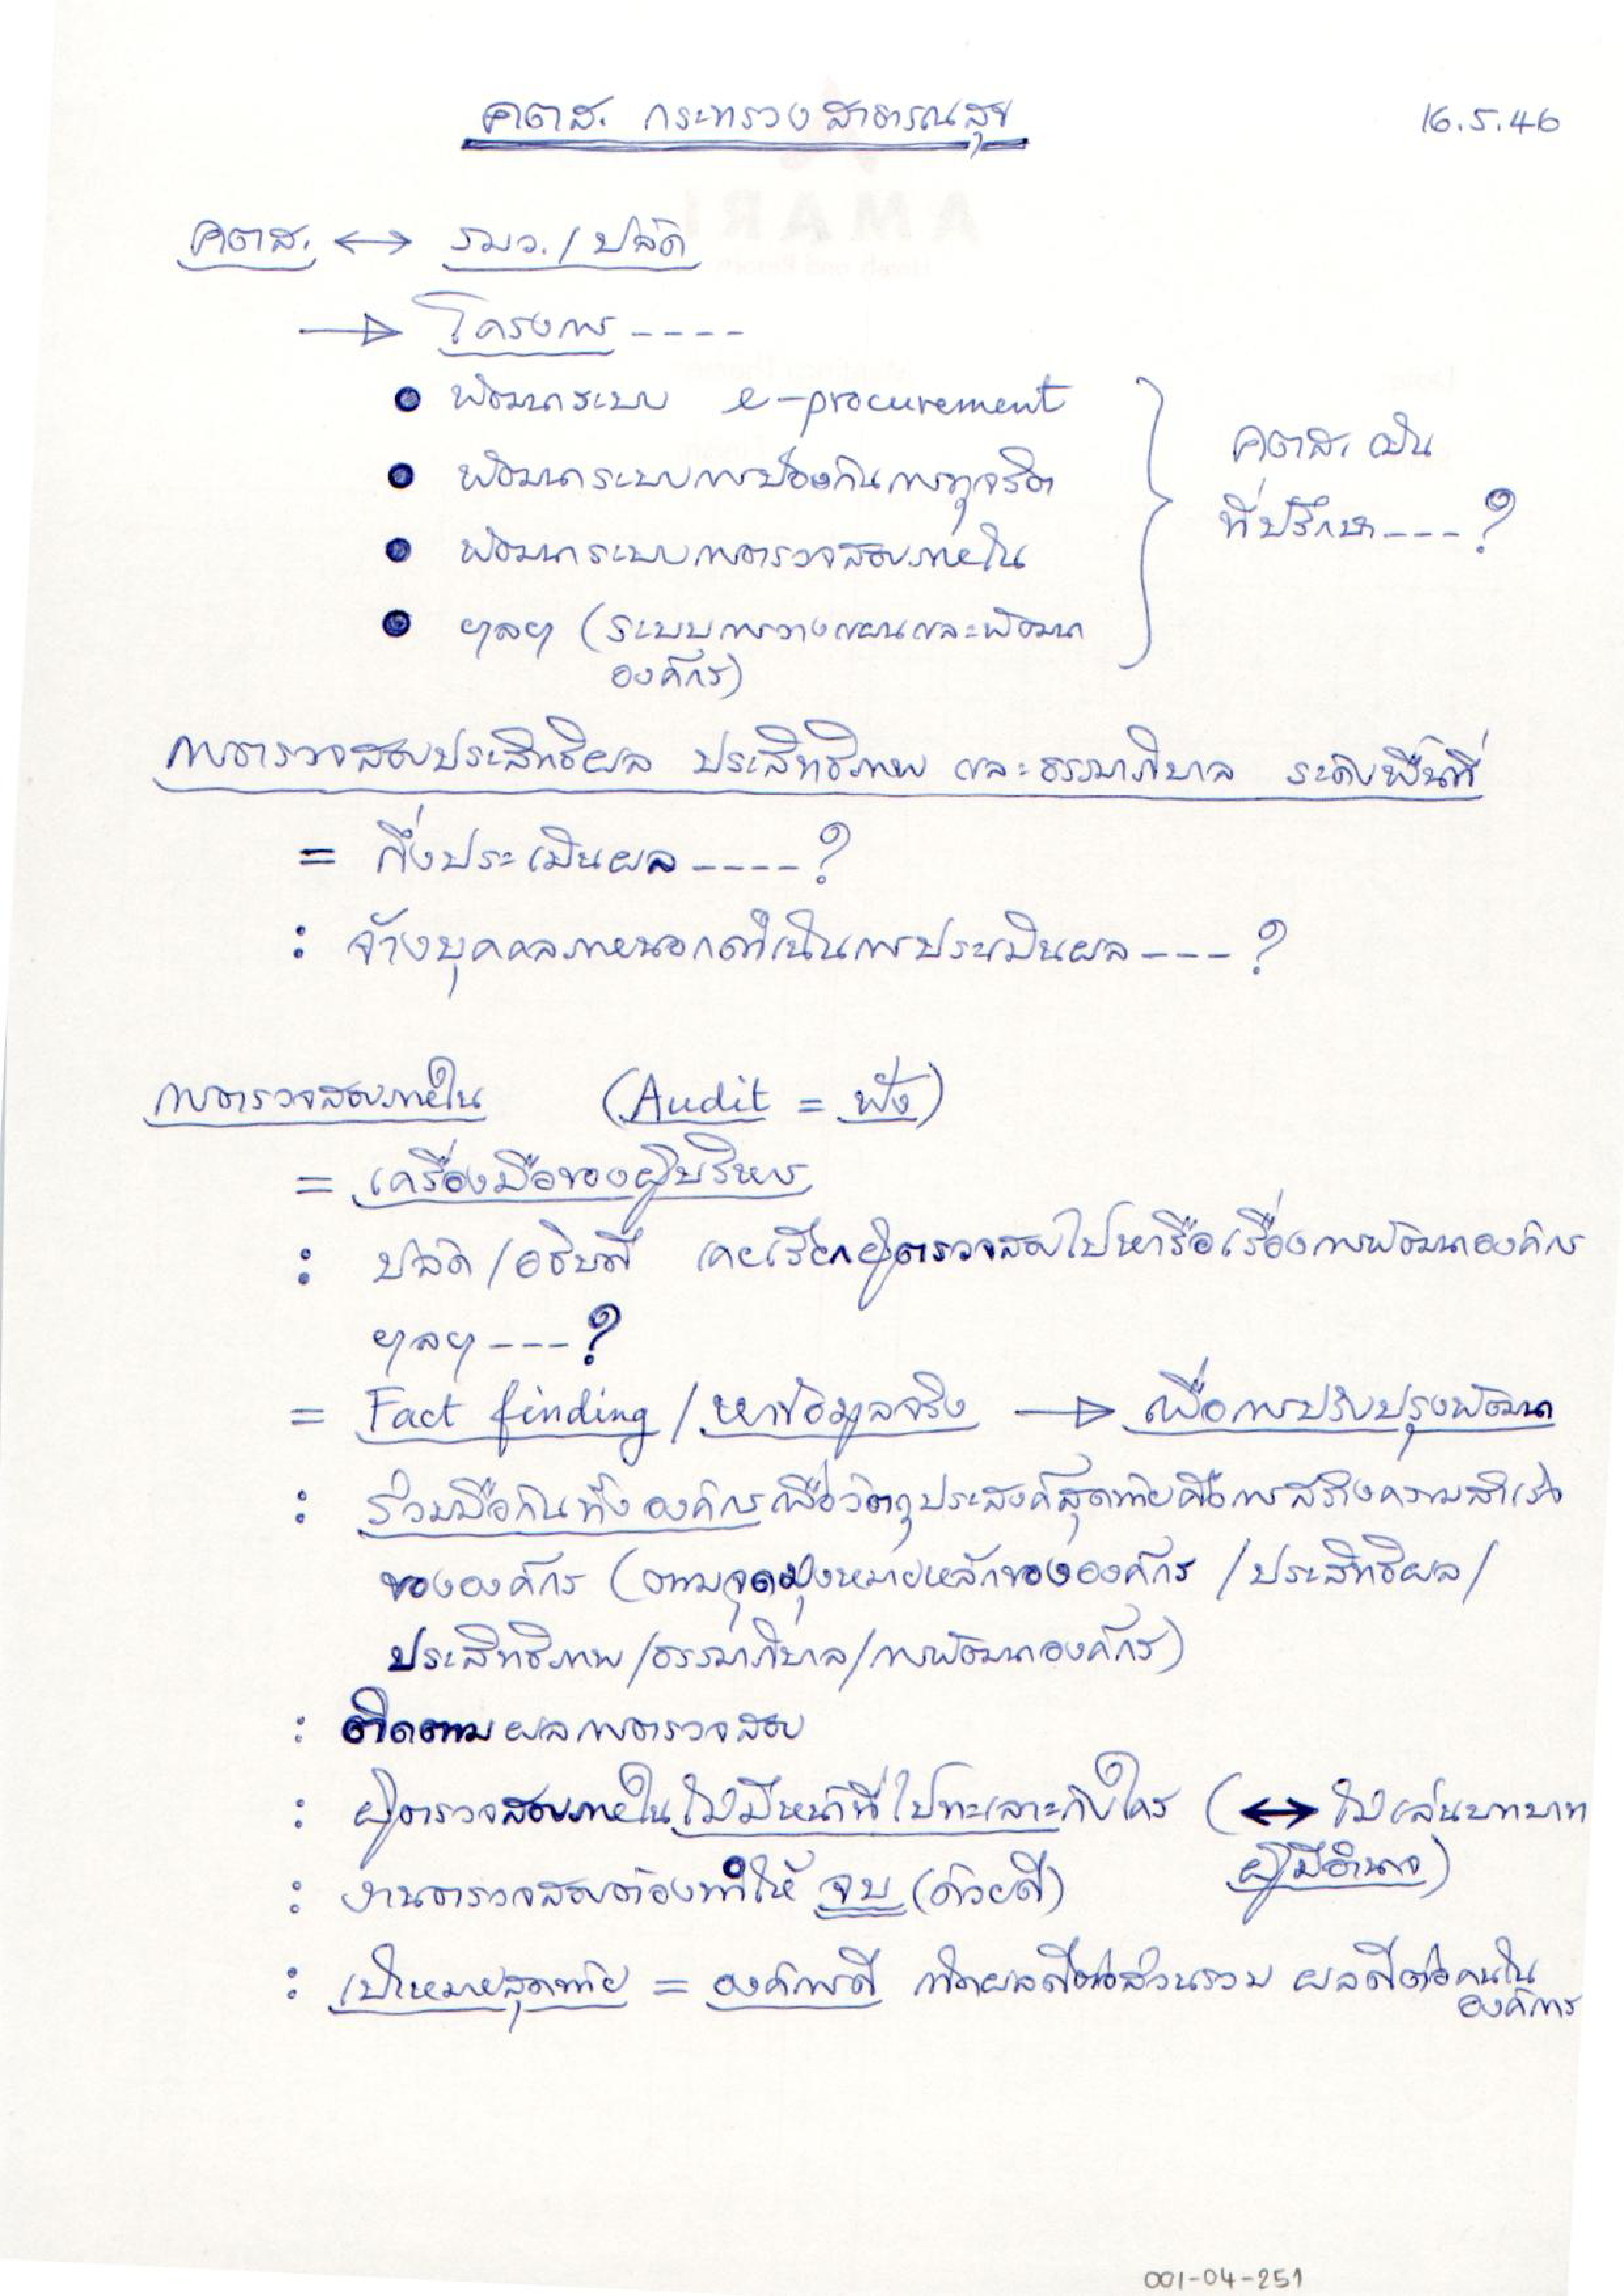 คตส. กระทรวงสาธารณสุข
16.5.46
คตส. ↔ รมว. / ปลัด
→ โครงการ ----
● พัฒนาระบบ e-procurement
● พัฒนาระบบการป้องกันการทุจริต
● พัฒนาระบบการตรวจสอบภายใน
● ฯลฯ (ระบบการวางแผนและพัฒนา
องค์กร)
คตส. เป็น
ที่ปรึกษา ---- ?
การตรวจสอบประสิทธิผล ประสิทธิภาพ และธรรมาภิบาล ระดับพื้นที่
= กึ่งประเมินผล ---- ?
: จ้างบุคคลภายนอกดำเนินการประเมินผล ---- ?
การตรวจสอบภายใน (Audit = ฟัง)
= เครื่องมือของผู้บริหาร
: ปลัด / อธิบดี เคยเรียกผู้ตรวจสอบไปหารือเรื่องการพัฒนาองค์กร
ฯลฯ ---- ?
= Fact finding / หาข้อมูลจริง → เพื่อการปรับปรุงพัฒนา
: ร่วมมือกันทั้งองค์กรเพื่อวัตถุประสงค์สุดท้ายคือการสร้างความสำเร็จ
ขององค์กร (ตามจุดมุ่งหมายหลักขององค์กร / ประสิทธิผล /
ประสิทธิภาพ / ธรรมาภิบาล / การพัฒนาองค์กร)
: ติดตามผลการตรวจสอบ
: ผู้ตรวจสอบภายในไม่มีหน้าที่ไปทะเลาะกับใคร (↔ ไม่เล่นบทบาท
ผู้มีอำนาจ)
: งานตรวจสอบต้องทำให้ จบ (ด้วยดี)
: เป้าหมายสุดท้าย = องค์การดี เกิดผลดีต่อส่วนรวม ผลดีต่อคนใน
องค์การ
001-04-251
AMARI